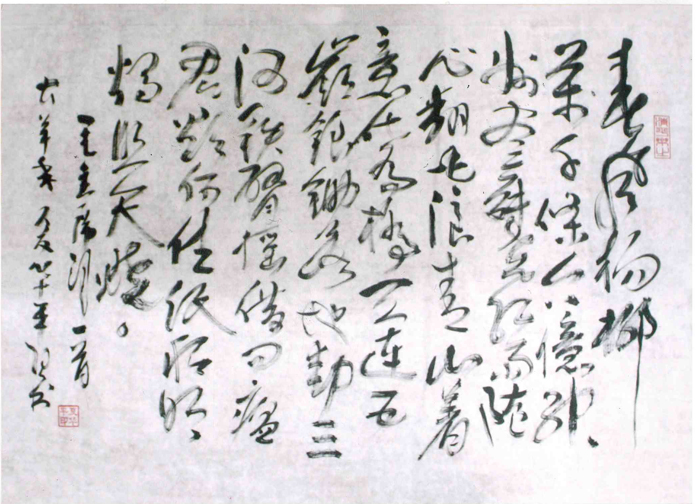 春风杨柳
萬千條六億神
州尽舜尧红雨随
心翻作浪青山着
意化为橋天连五
嶺银鋤落地动三
河铁臂摇借问瘟
君欲何往纸船明
烛照天烧
毛主席诗一首
羊年夏